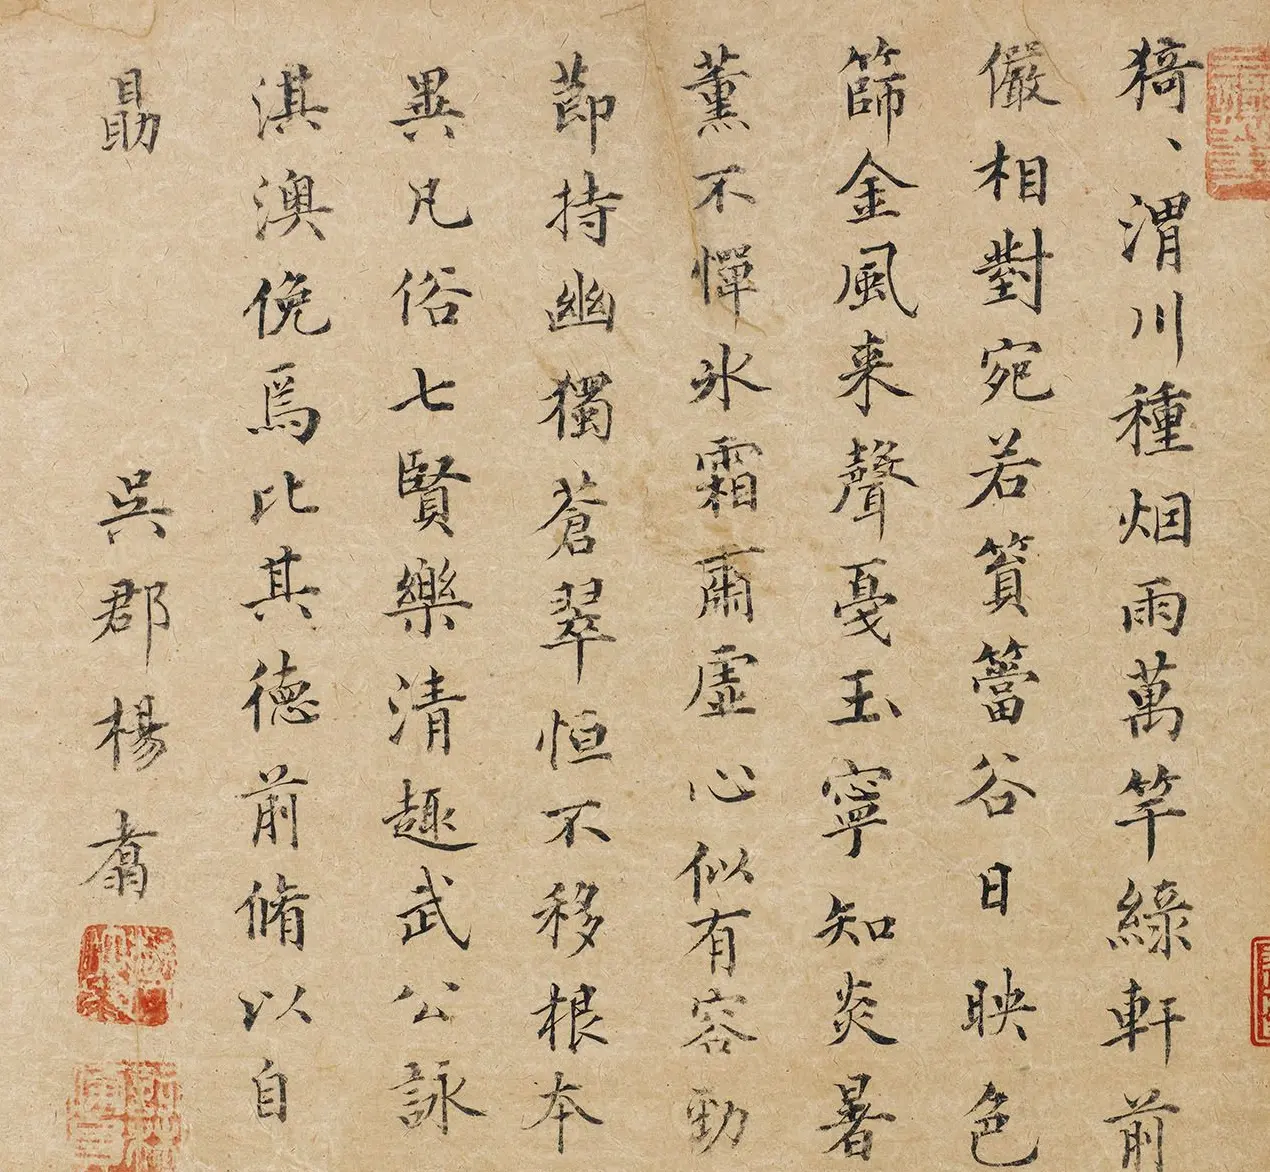 猗、渭川種烟雨萬竿綠軒前
儼相對宛若篔簹谷日映色
篩金風来聲戞玉寧知炎暑
薰不憚氷霜肅虛心似有容勁
莭持幽獨蒼翠恒不移根本
異凡俗七賢樂清趣武公詠
淇澳俛焉比其德前脩以自
勗
吳郡楊翥